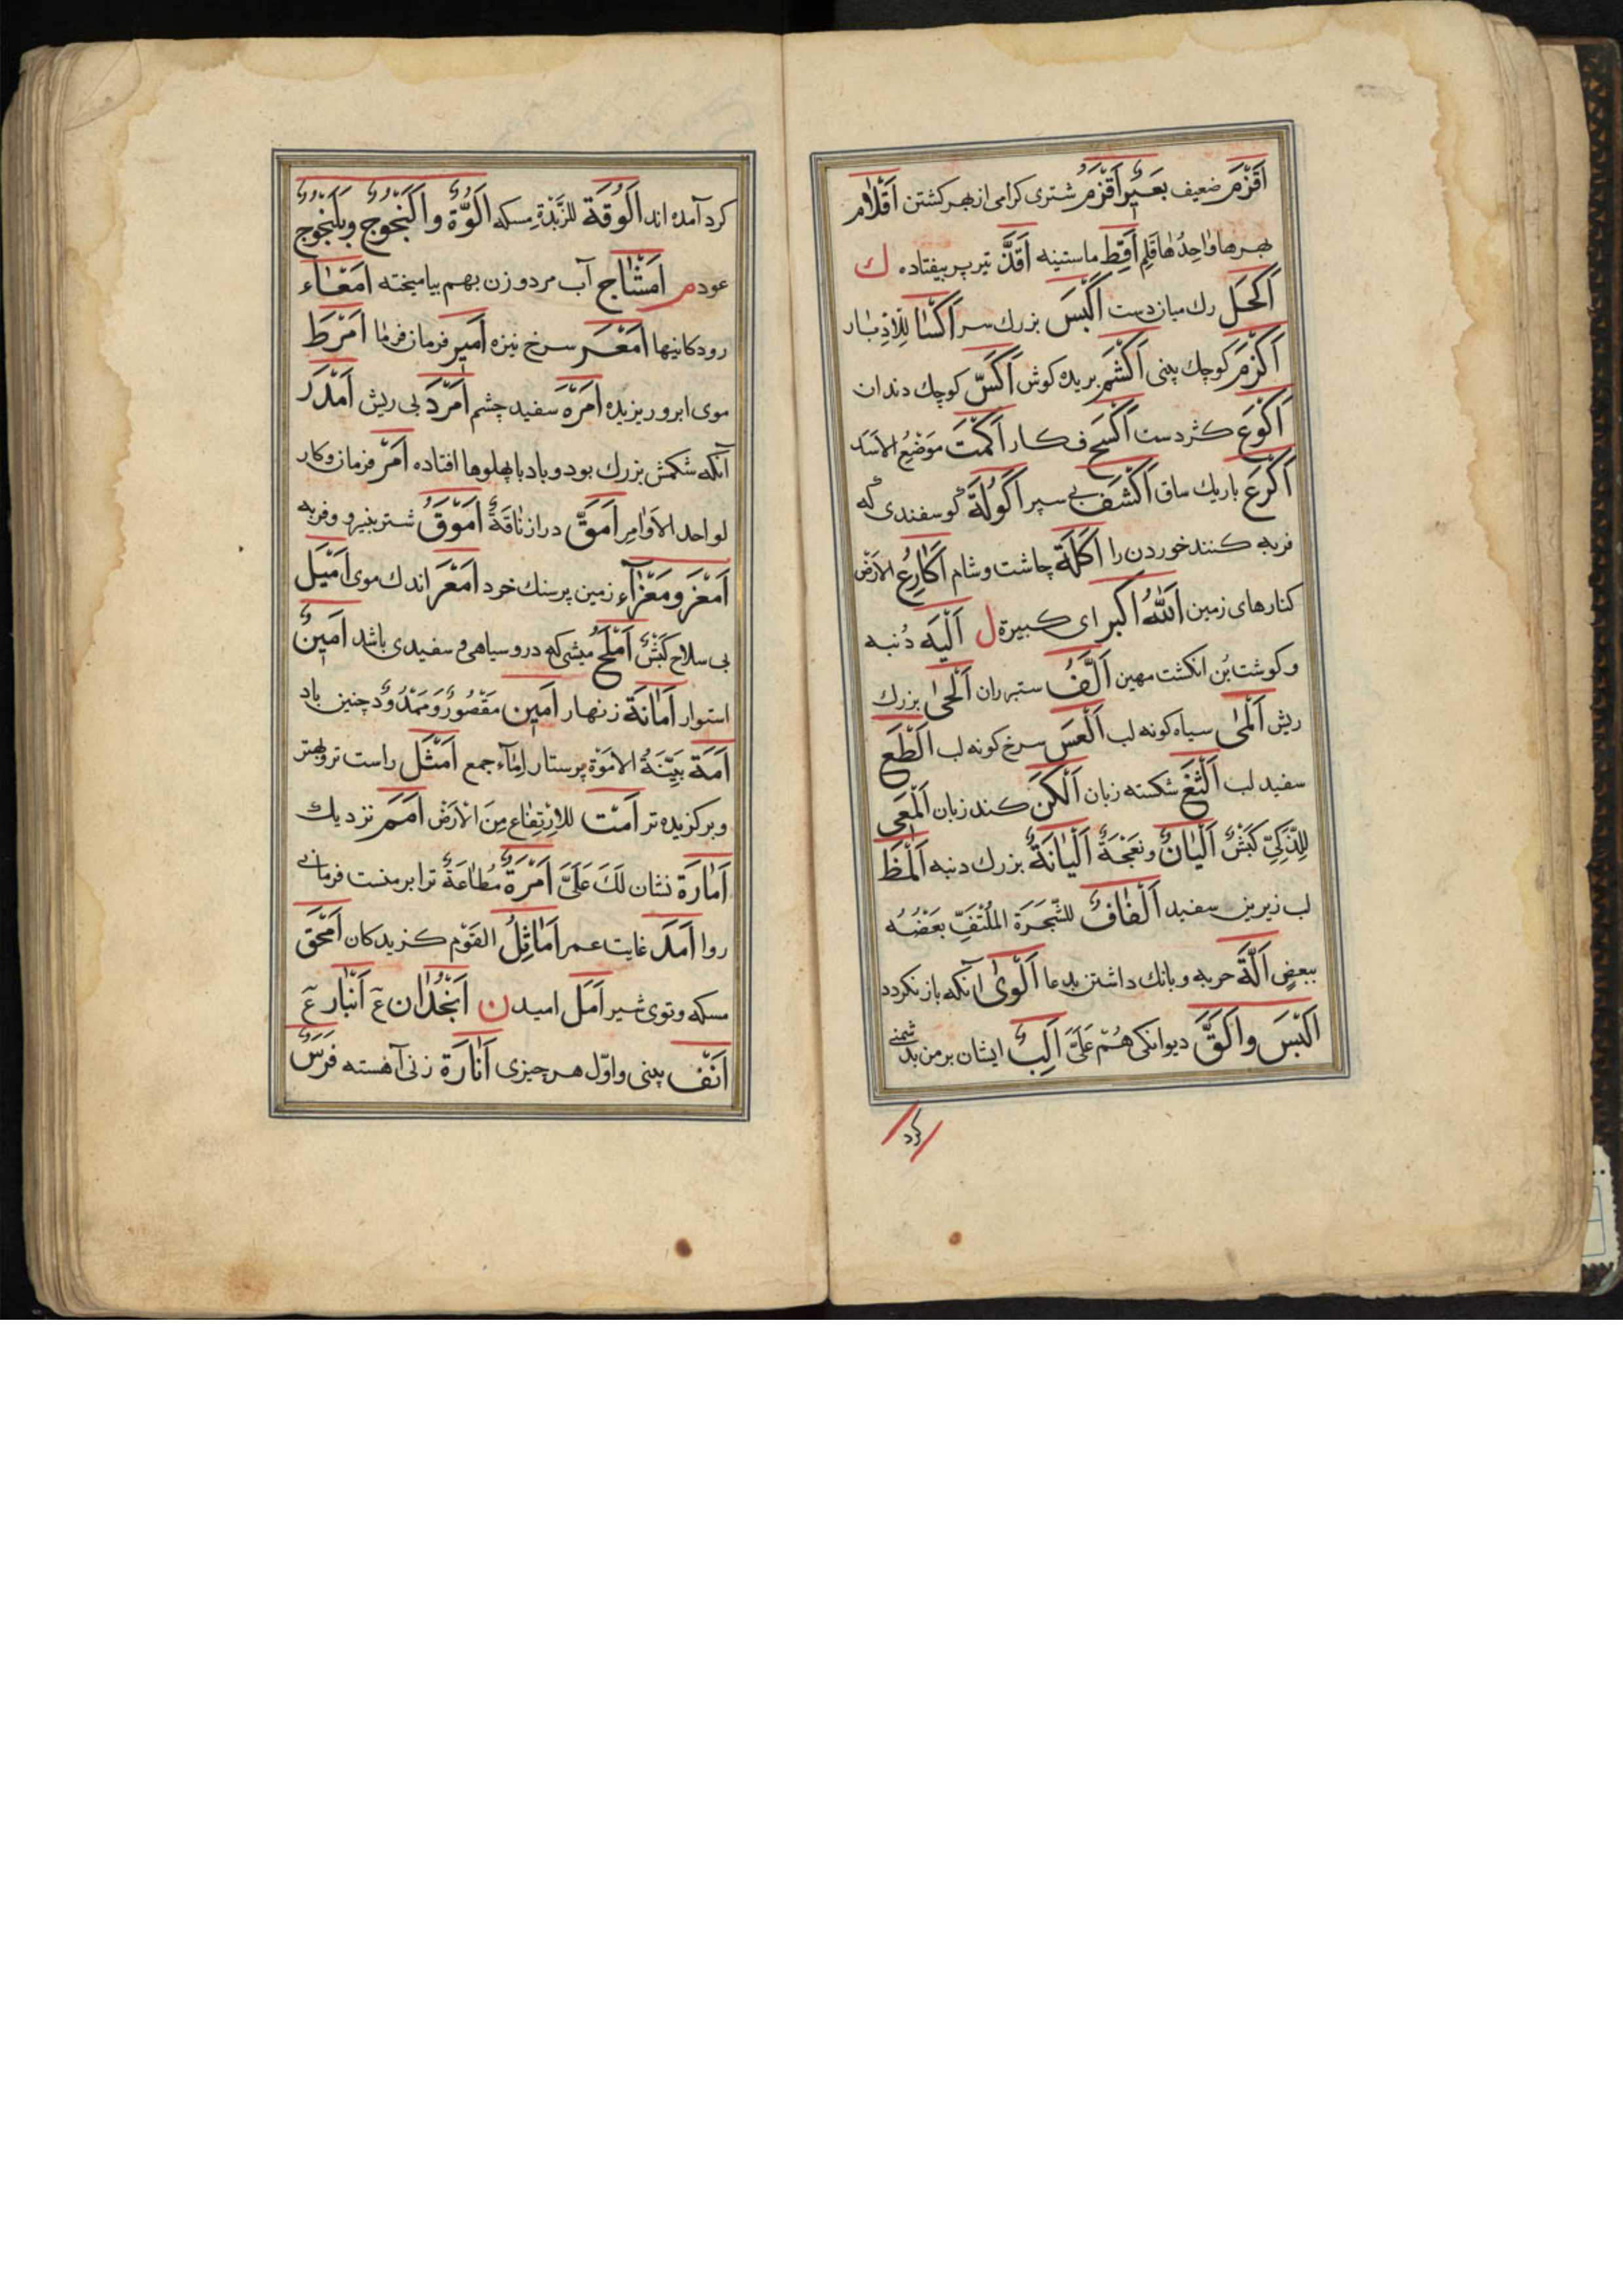 اَقْزَمْ ضعیف بَعیرٌ اَقْزَمُ شتری کرامی از بهر کشتن اَقْلٰام
بهرها واحِدُهٰا قَلِم اَقِطْ ماستینه اَقَذّ تیر پر بیفتاده ك
اَكْحَل رك میان دست اَكْبَسْ بزرك سر اَكْسٰا لِلْاَدْبٰار
اَكْزَمْ کوچك بینی اَكْشَمْ بریده کوش اَكَسّ کوچك دندان
اَكْوَعْ کژ دست اَكْسَحْ فکار اَكْمَتْ مَوْضِعُ الاَسَد
اَكْرَعْ باریك ساق اَكْشَفْ بی سپر اَكُولَة کوسفندی که
فربه کنند خوردن را اَكْلَة چاشت وشام اَكٰارِعُ الاَرْض
کنارهای زمین اَللهُ اَكْبَر ای کبیرة ل اَلْیَه دُنبه
وکوشت بُن انکشت مهین اَلَفُّ ستبر ران اَلْحٰی بزرك
ریش اَلْمٰی سیاه کونه لب اَلْعَسْ سرخ کونه لب اَلْطَعْ
سفید لب اَلْثَغْ شکسته زبان اَلْكَنْ کند زبان اَلْمَعِی
لِلذَّكِیّ كَبْشٌ اَلْیٰانٌ ونَعْجَةٌ اَلْیٰانَةٌ بزرك دنبه اَلْمَظ
لب زیرین سفید اَلْفٰافٌ للشَّجَرَة المُلْتَفِّ بَعْضُهُ
ببعضٍ اَلَّة حربه وبانك داشتن بدعا اَلْوٰی آنکه باز نکردد
اَلْبَسْ واَلَقّ دیوانکی هُمْ عَلَیَّ اَلِبٌ ایشان بر من بدشمنی
کرد
کرد آمده اند اَلُوقَة للزُّبْدَةِ مسکه اَلُوَّةٌ واَلَنْجُوجٌ ویَلَنْجُوجٌ
عود م اَمْشٰاج آب مرد وزن بهم بیامیخته اَمْعٰاء
رودکانیها اَمْغَر سرخ نیزه اَمیر فرمان فرما اَمْرَط
موی ابرو ریزیده اَمْرَه سفید چشم اَمْرَدْ بی ریش اَمْدَر
آنکه شکمش بزرك بود وباد با پهلوها افتاده اَمْر فرمان وکار
لواحد الاَوٰامِر اَمَقّ دراز نٰاقَةٌ اَمْوَقُ شتر بنیرو وفربه
اَمْعَزْ ومَعْزٰآء زمین پر سنك خرد اَمْعَر اندك موی اَمْیَل
بی سلاح كَبْشٌ اَمْلَحُ میشی که درو سیاهی وسفیدی باشد اَمینٌ
استوار اَمٰانَة زنهار اَمین مَقْصُورٌ ومَمْدُودٌ چنین باد
اَمَة بَیِّنَةُ الاَمُوَّةِ پرستار اِمٰآء جمع اَمْثَل راست تر وبهتر
وبرکزیده تر اَمْت للاِرْتِفٰاع مِنَ الْاَرْض اَمَمْ نزدیك
اَمٰارَة نشان لَكَ عَلَیَّ اَمْرَةٌ مُطٰاعَةٌ ترا بر منست فرمانی
روا اَمَدْ غایت عمر اَمٰاثِلُ القَوْم کزیدکان اَمْحَق
مسکه وتوی شیر اَمَل امید ن اَنْجُدٰان عَ اَنْبٰار عَ
اَنْف بینی واوّل هر چیزی اَنٰارَة زنی آهسته فَرَسٌ